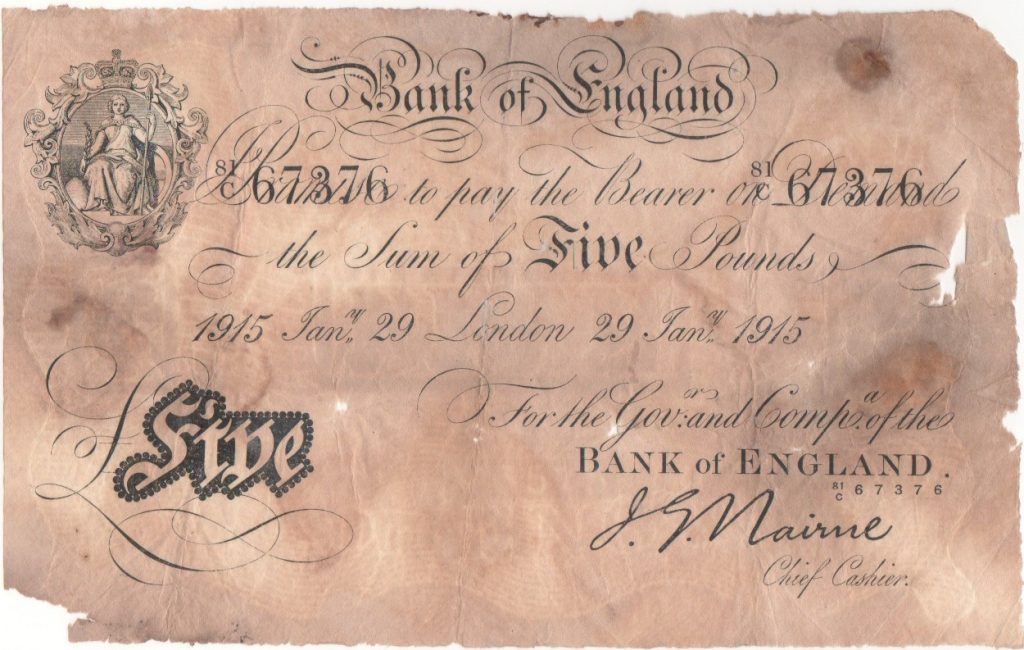 Bank of England
81/C 67376 81/C 67376
Promise to pay the Bearer on Demand
the Sum of Five Pounds
1915 Jan.y 29 London 29 Jan.y 1915
For the Gov.r and Comp.a of the
£Five
BANK of ENGLAND.
81/C 67376
J. G. Nairne
Chief Cashier.